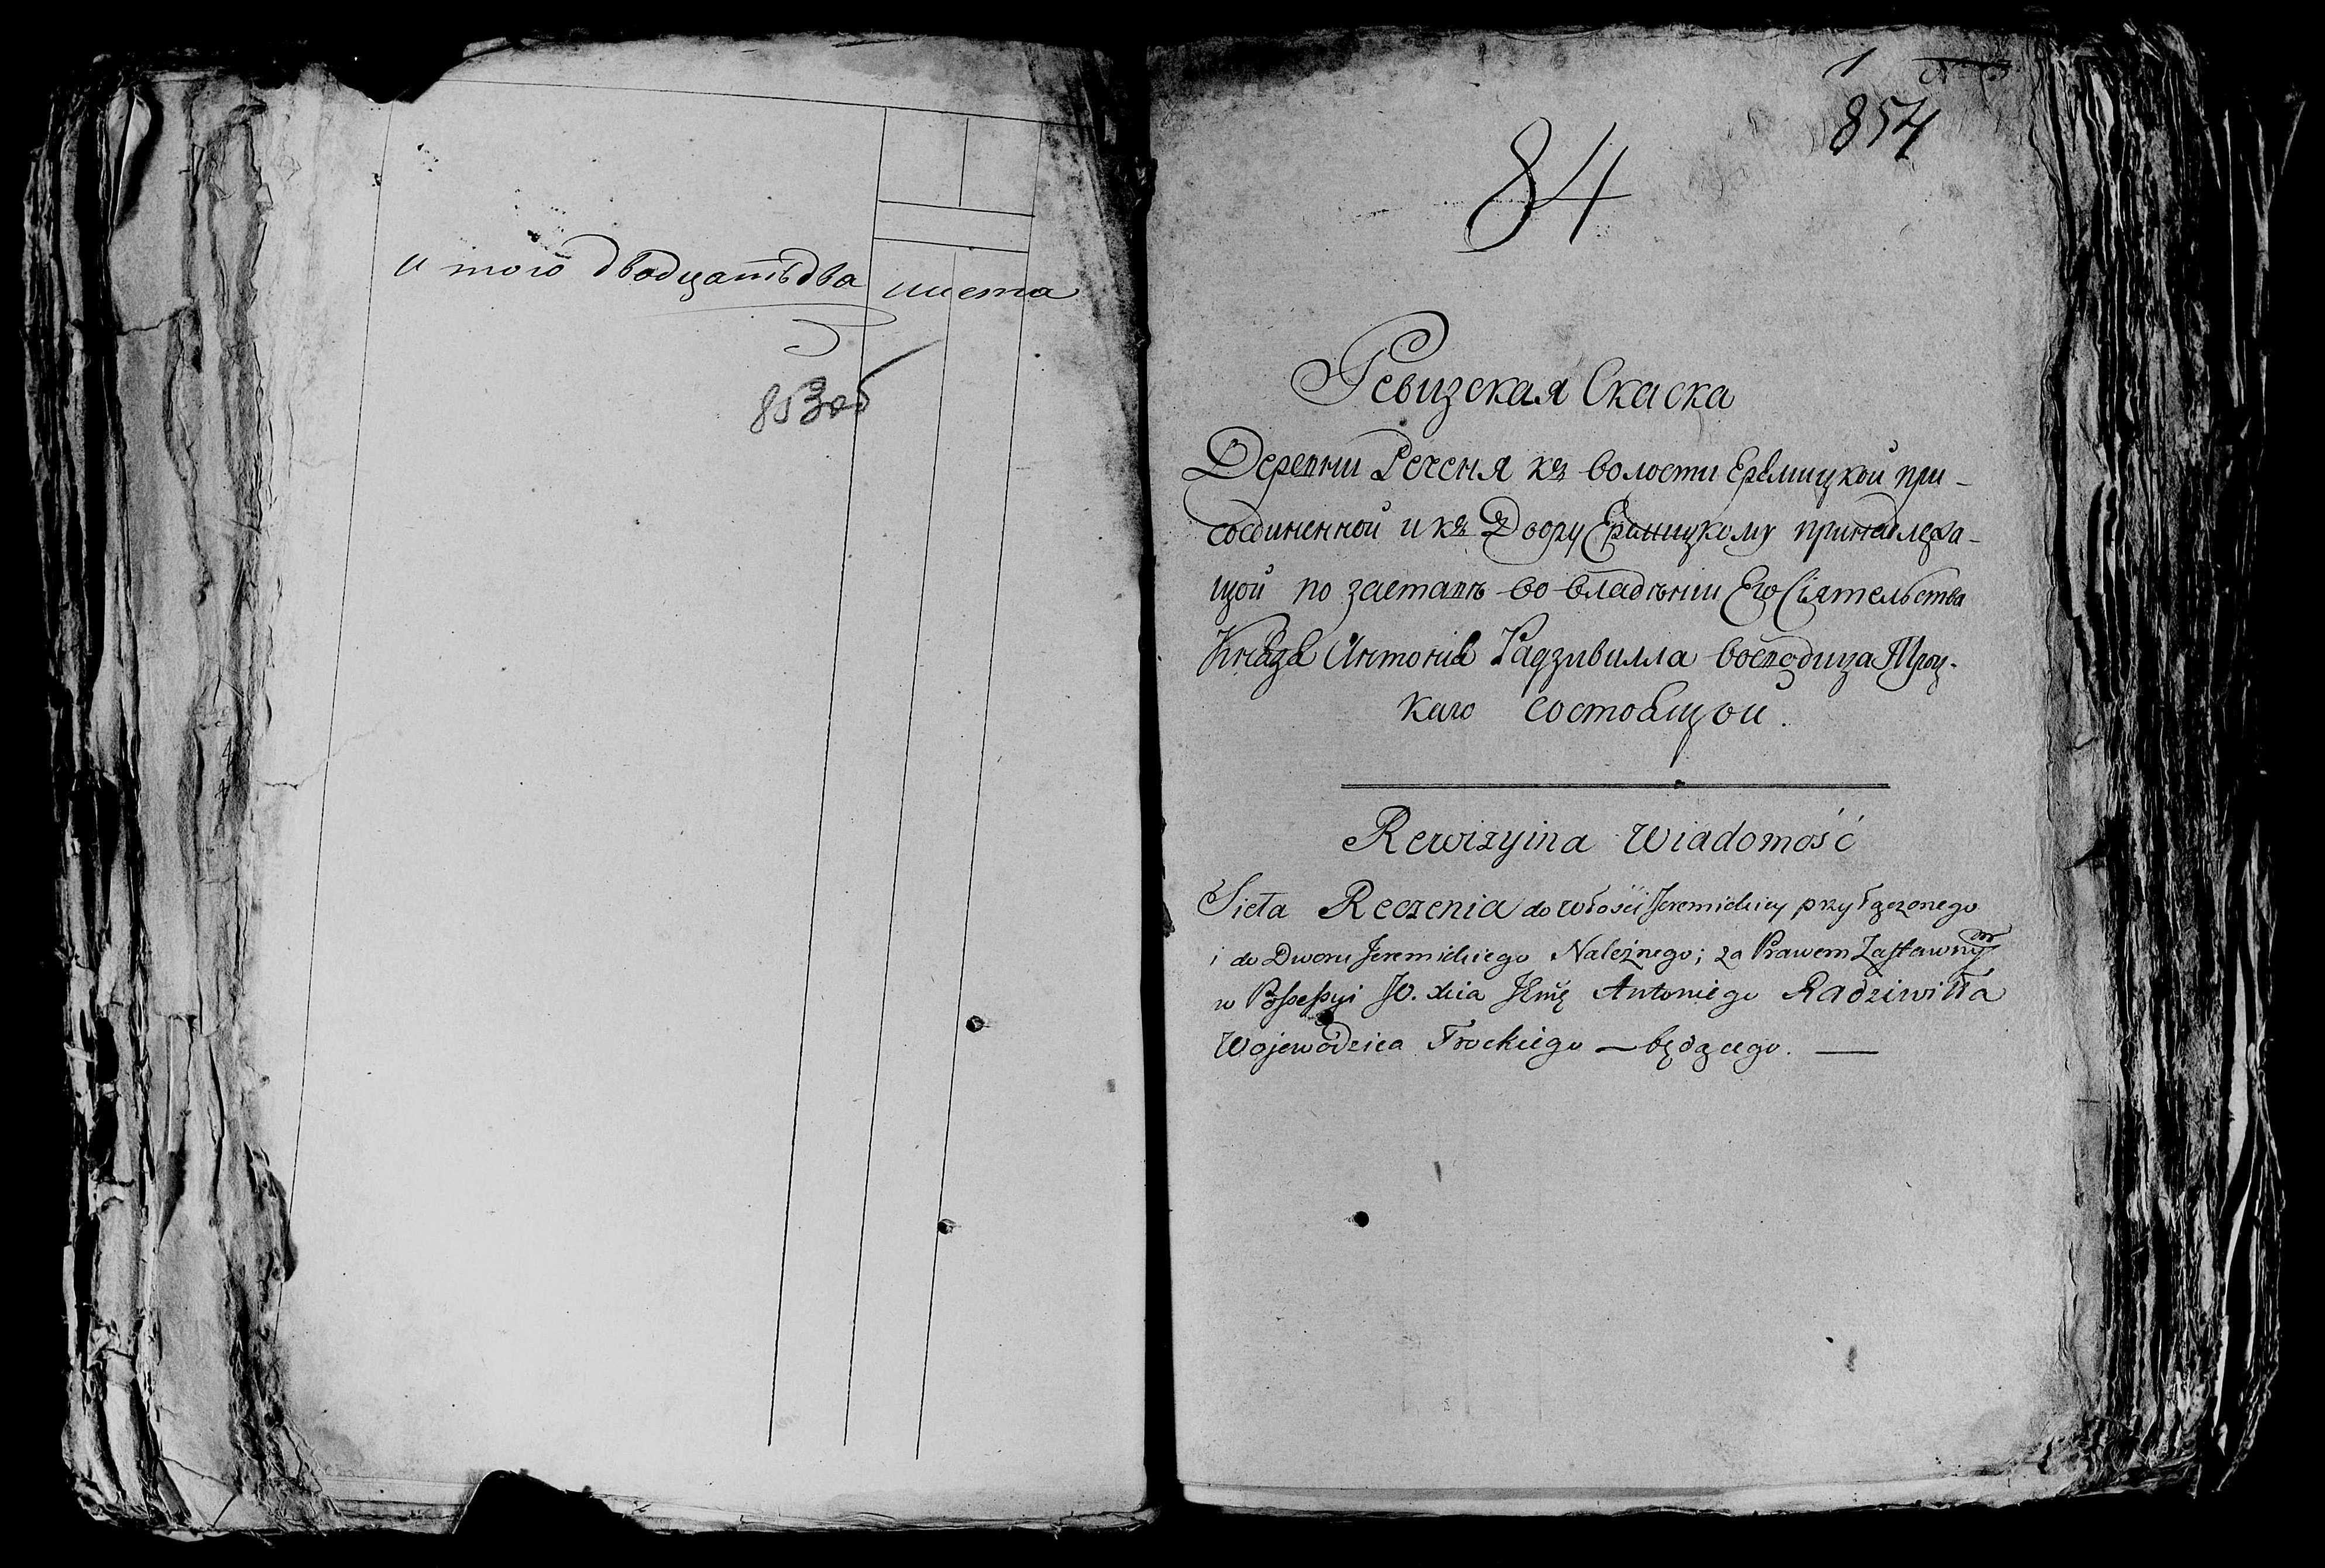 и того двадцать два листа
853об
1
854
84
Ревизская Скаска
Деревни Реченя къ волости Еремицкой при-
соединенной и къ Двору Еремицкому принадлежа-
щой по заставѣ во владѣнии Его Сіятельства
Князя Антонія Радзивилла воеводица Троц-
каго состоящой.
Rewizyina Wiadomość
Sieła Reczenia do włości Jeremickiey przyłączonego
i do Dworu Jeremickiego Należnego; za Prawem Zastawnym
w Possessyi JO. Xcia Jmć Antoniego Radziwiłła
Wojewodzica Trockiego — będącego. —